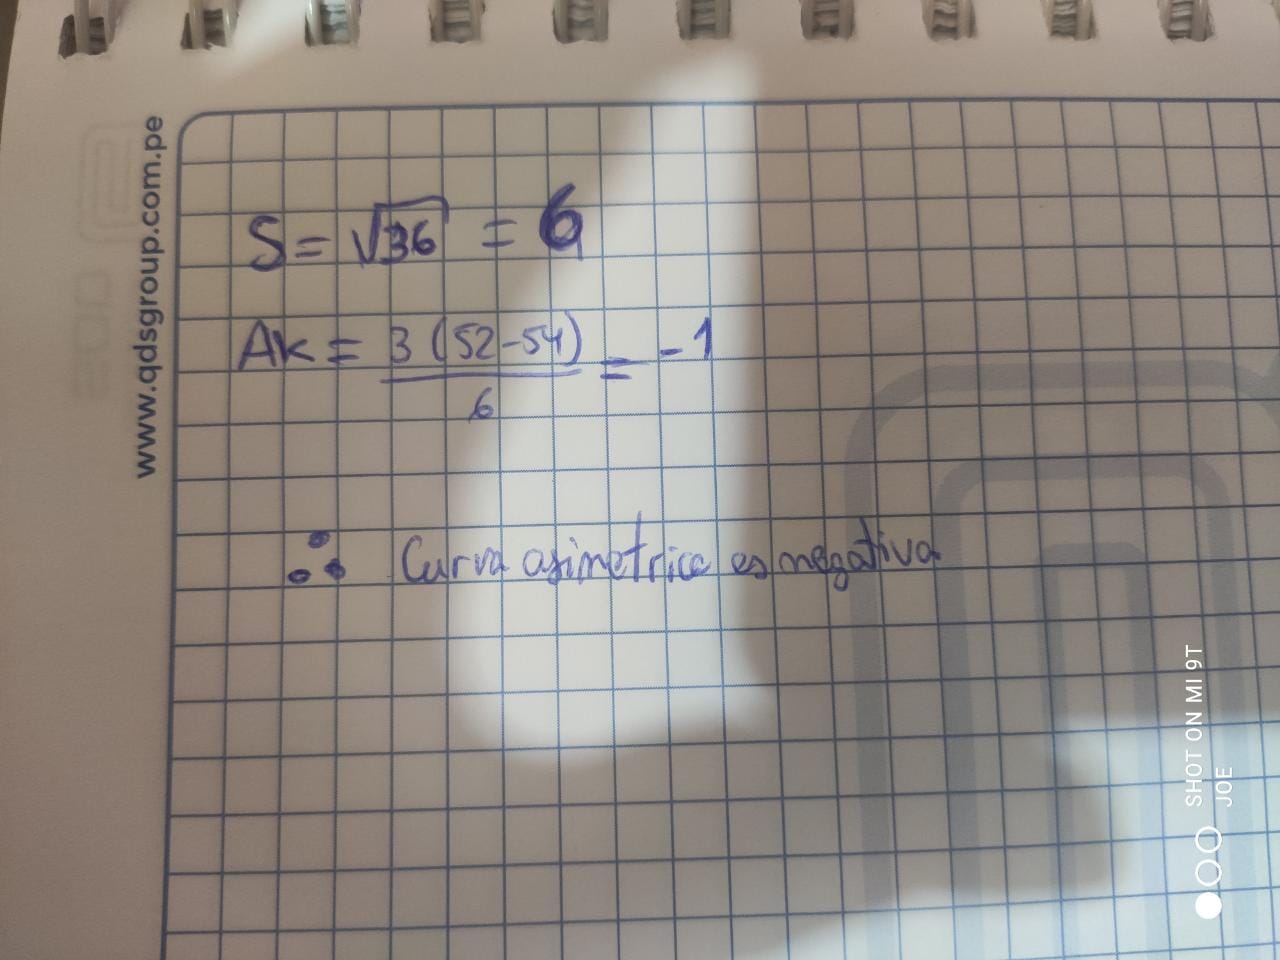 www.qdsgroup.com.pe
S = √36 = 6
Ak = 3 (52-54) / 6 = -1
∴ Curva asimetrica es negativa
SHOT ON MI 9T
JOE